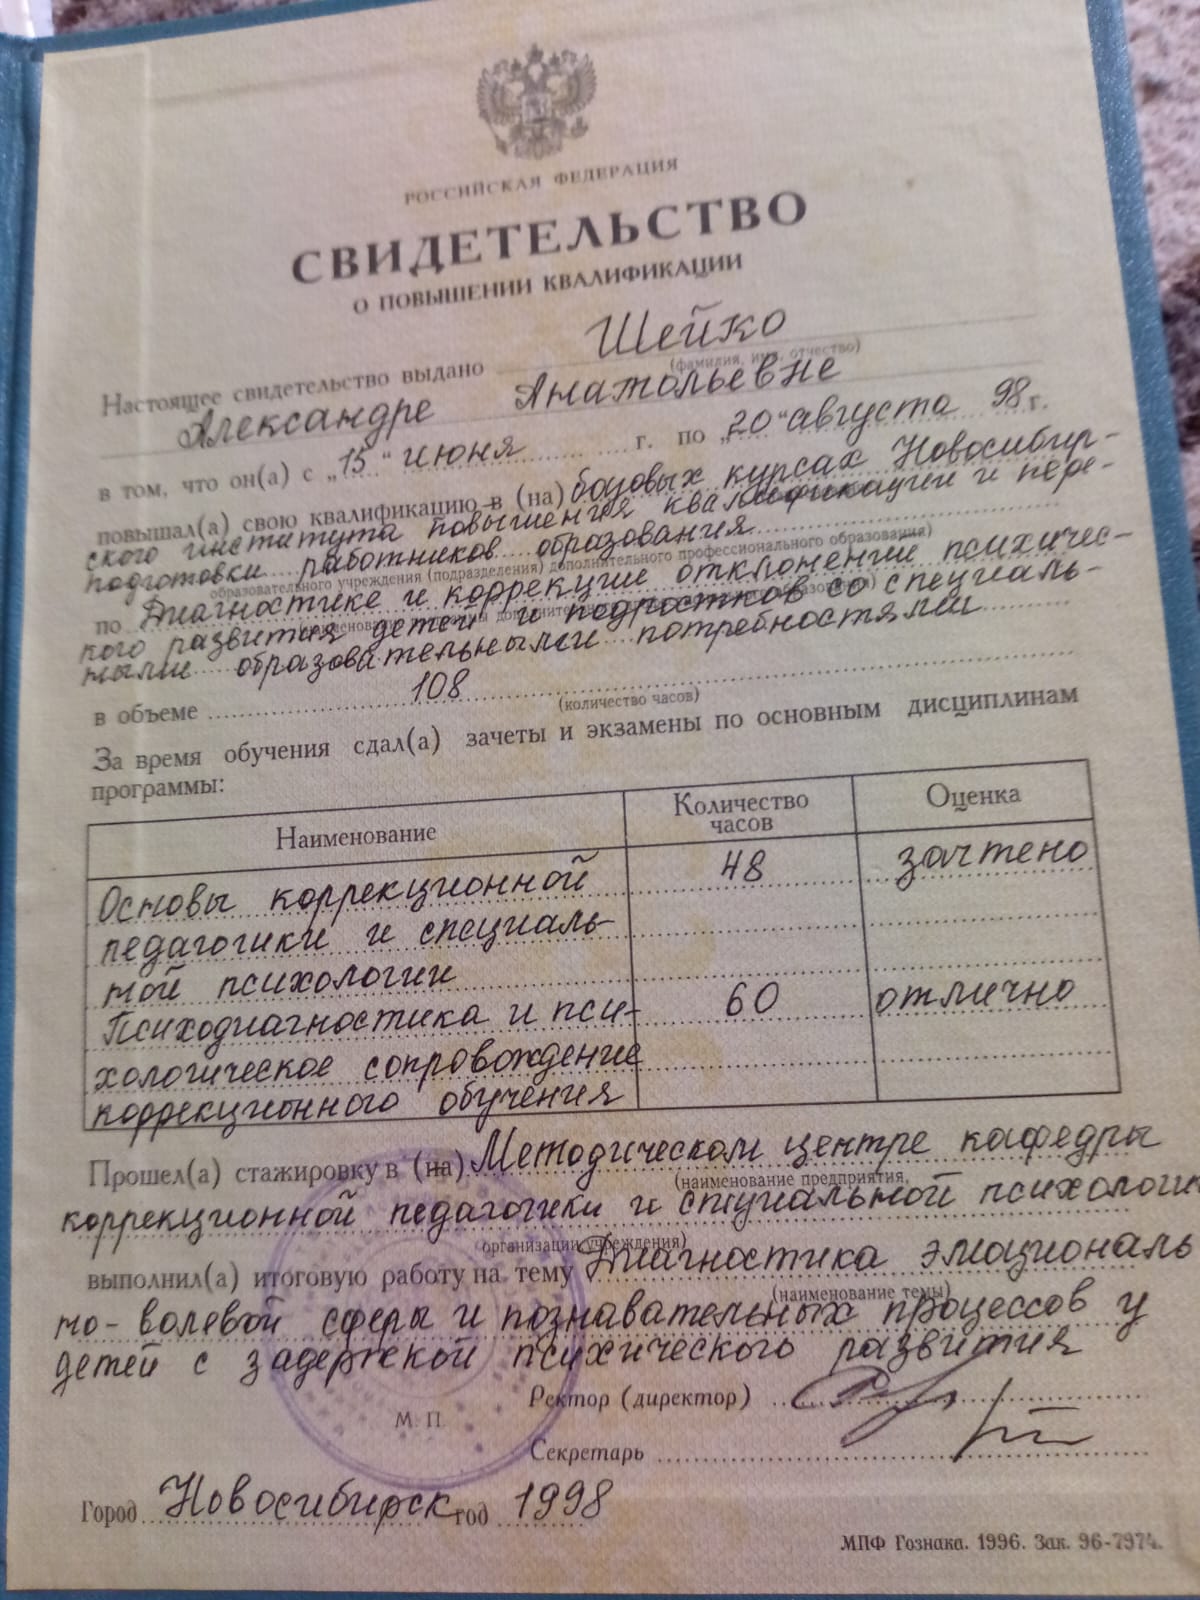 РОССИЙСКАЯ ФЕДЕРАЦИЯ
СВИДЕТЕЛЬСТВО
О ПОВЫШЕНИИ КВАЛИФИКАЦИИ
Настоящее свидетельство выдано Шейко
(фамилия, имя, отчество)
Александре Анатольевне
в том, что он(а) с „15“ июня г. по „20“ августа 98 г.
повышал(а) свою квалификацию в (на) базовых курсах Новосибир-
ского института повышения квалификации и пере-
подготовки работников образования
образовательного учреждения (подразделения) дополнительного профессионального образования)
по Диагностике и коррекции отклонений психичес-
кого развития детей и подростков со специаль-
ными образовательными потребностями
в объеме 108
(количество часов)
За время обучения сдал(а) зачеты и экзамены по основным дисциплинам
программы:
Наименование Количество часов Оценка
Основы коррекционной 48 зачтено
педагогики и специаль-
ной психологии
Психодиагностика и пси- 60 отлично
хологическое сопровождение
коррекционного обучения
Прошел(а) стажировку в (на) Методическом центре кафедры
(наименование предприятия,
коррекционной педагогики и специальной психологии
организации, учреждения)
выполнил(а) итоговую работу на тему Диагностика эмоциональ
(наименование темы)
но-волевой сферы и познавательных процессов у
детей с задержкой психического развития
Ректор (директор)
М. П.
Секретарь
Город Новосибирск год 1998
МПФ Гознака. 1996. Зак. 96-7974.